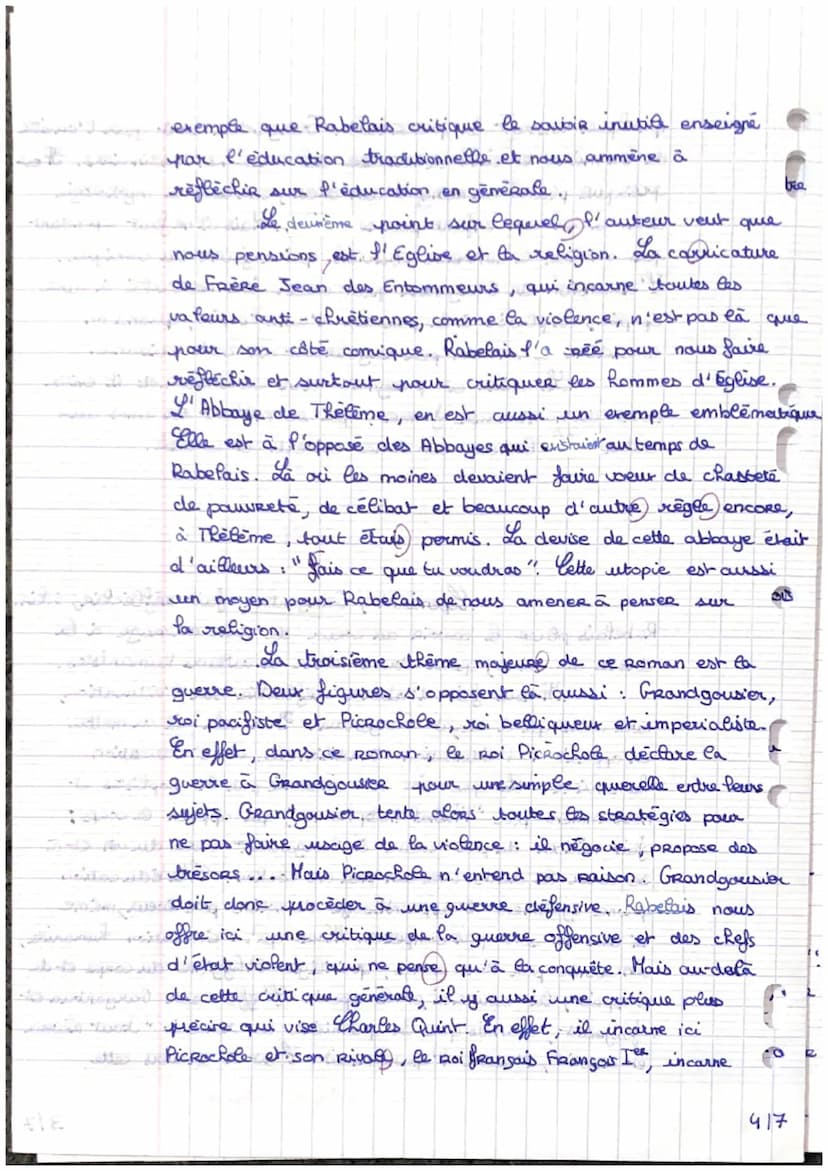 exemple que Rabelais critique le savoir inutile enseigné
par l'éducation traditionnelle et nous ammène à
réfléchir sur l'éducation en générale.
Le deuxième point sur lequel, l'auteur veut que
nous pensions, est l'Eglise et la religion. La carricature
de Frère Jean des Entommeurs, qui incarne toutes les
valeurs anti-chrétiennes, comme la violence, n'est pas là que
pour son côté comique. Rabelais l'a créé pour nous faire
réfléchir et surtout pour critiquer les hommes d'Église.
L'Abbaye de Thélème, en est aussi un exemple emblématique
Elle est à l'opposé des Abbayes qui existaient au temps de
Rabelais. Là où les moines devaient faire voeur de chasteté
de pauvreté, de célibat et beaucoup d'autre règle encore,
à Thélème, tout étais permis. La devise de cette abbaye était
d'ailleurs : "fais ce que tu voudras". Cette utopie est aussi
un moyen pour Rabelais de nous amener à penser sur
la religion.
La troisième thème majeure de ce roman est la
guerre. Deux figures s'opposent là aussi : Grandgousier,
roi pacifiste et Picrochole, roi belliqueux et imperialiste.
En effet, dans ce roman, le roi Picrochole déclare la
guerre à Grandgousier pour une simple querelle entre leurs
sujets. Grandgousier tente alors toutes les stratégies pour
ne pas faire usage de la violence : il négocie, propose des
trésors... Mais Picrochole n'entend pas raison. Grandgousier
doit donc procéder à une guerre défensive. Rabelais nous
offre ici une critique de la guerre offensive et des chefs
d'état violent, qui ne pense qu'à la conquête. Mais au-delà
de cette critique générale, il y aussi une critique plus
précise qui vise Charles Quint. En effet, il incarne ici
Picrochole et son rival, le roi français François Ier, incarne
4/7